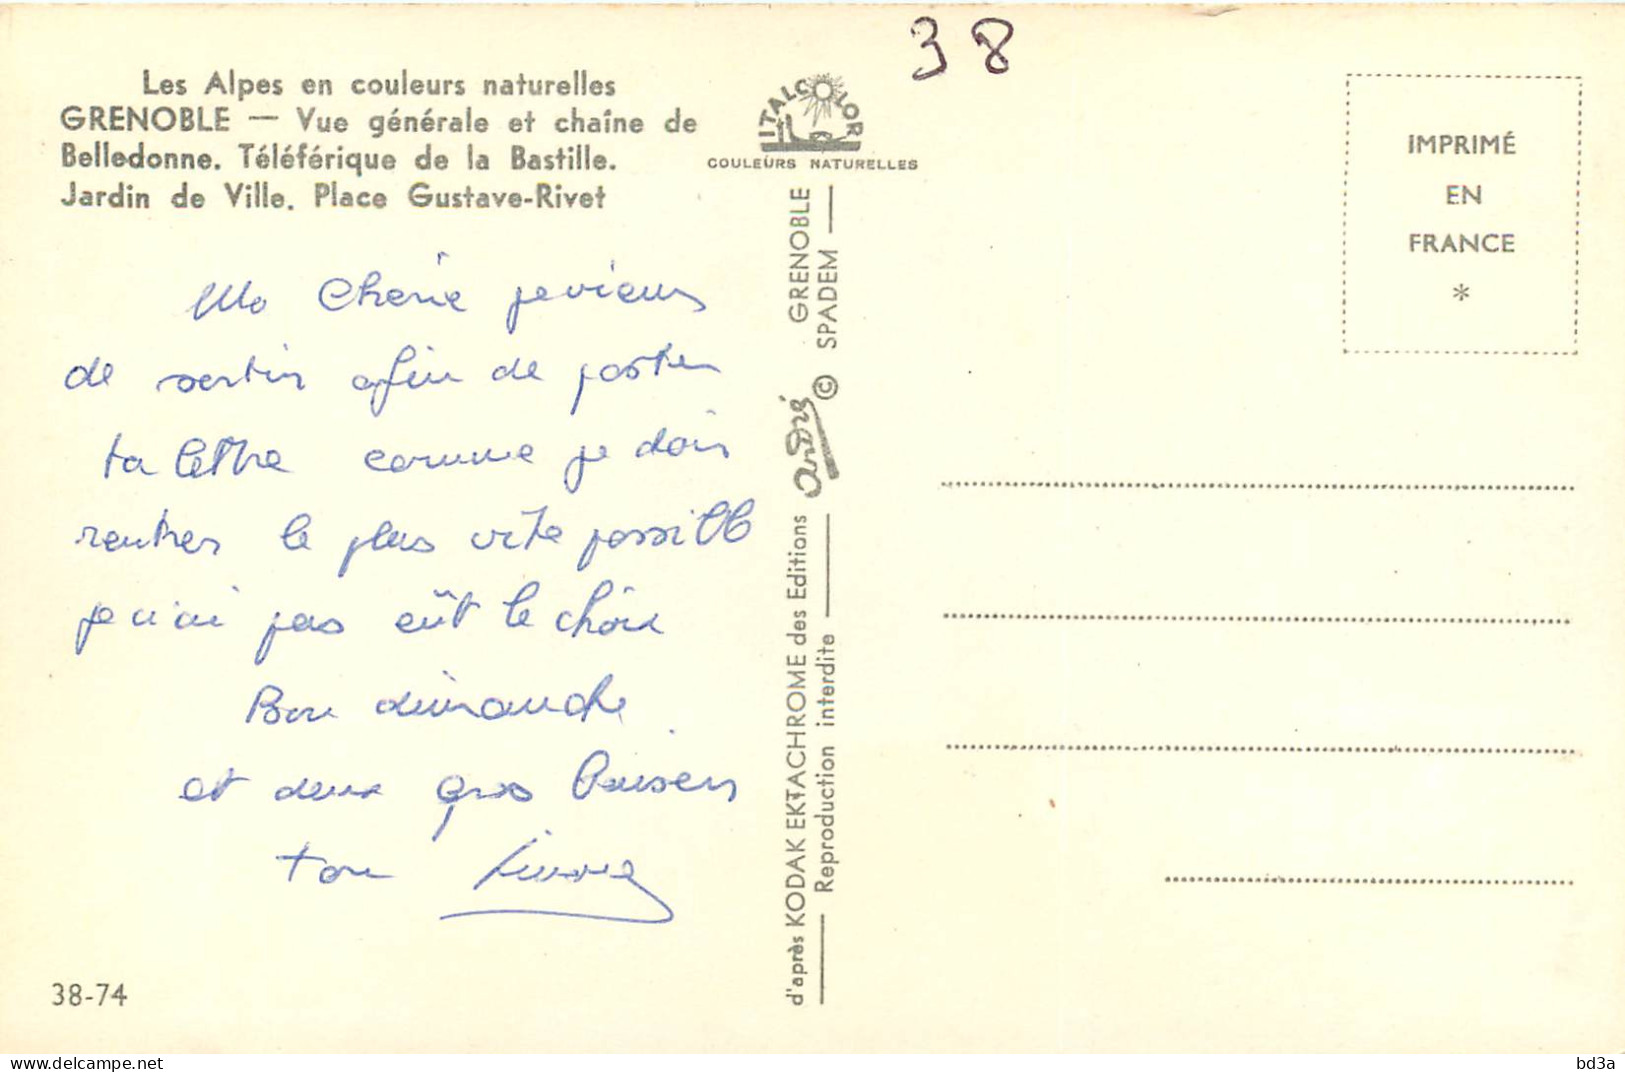 38
Les Alpes en couleurs naturelles
GRENOBLE — Vue générale et chaîne de
Belledonne. Téléférique de la Bastille.
Jardin de Ville. Place Gustave-Rivet
ITALCOLOR
COULEURS NATURELLES
IMPRIMÉ
EN
FRANCE
*
Ma Chérie je viens
de sortir afin de poster
ta lettre comme je dois
rentrer le plus vite possible
je n'ai pas eût le choix
Bon dimanche
et deux gros Baisers
ton
38-74
d'après KODAK EKTACHROME des Editions André GRENOBLE
Reproduction interdite © SPADEM
delcampe.net
bd3a